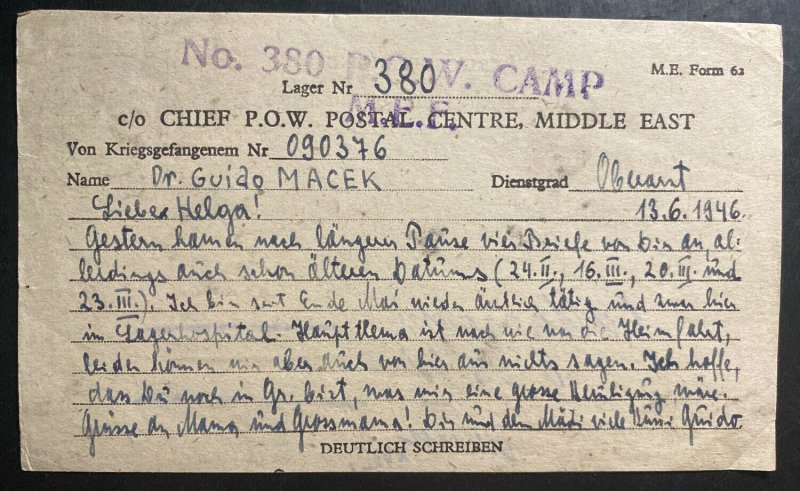 No. 380 P.O.W. CAMP
M.E.F.
M.E. Form 62
Lager Nr 380
c/o CHIEF P.O.W. POSTAL CENTRE, MIDDLE EAST
Von Kriegsgefangenem Nr 090376
Name Dr. Guido MACEK Dienstgrad Oberarzt
Liebe Helga! 13.6.1946.
Gestern kamen nach längerer Pause vier Briefe von Dir an, al-
lerdings auch schon älteren Datums (24.II., 16.III., 20.III. und
23.III.). Ich bin seit Ende Mai wieder ärztlich tätig und zwar hier
im Lagerhospital. Hauptthema ist nach wie vor die Heimfahrt,
leider können wir aber auch von hier aus nichts sagen. Ich hoffe,
dass Du noch in Gr. bist, was mir eine grosse Beruhigung wäre.
Grüsse an Mama und Grossmama! Dir und dem Mädi viele Bussi Guido
DEUTLICH SCHREIBEN